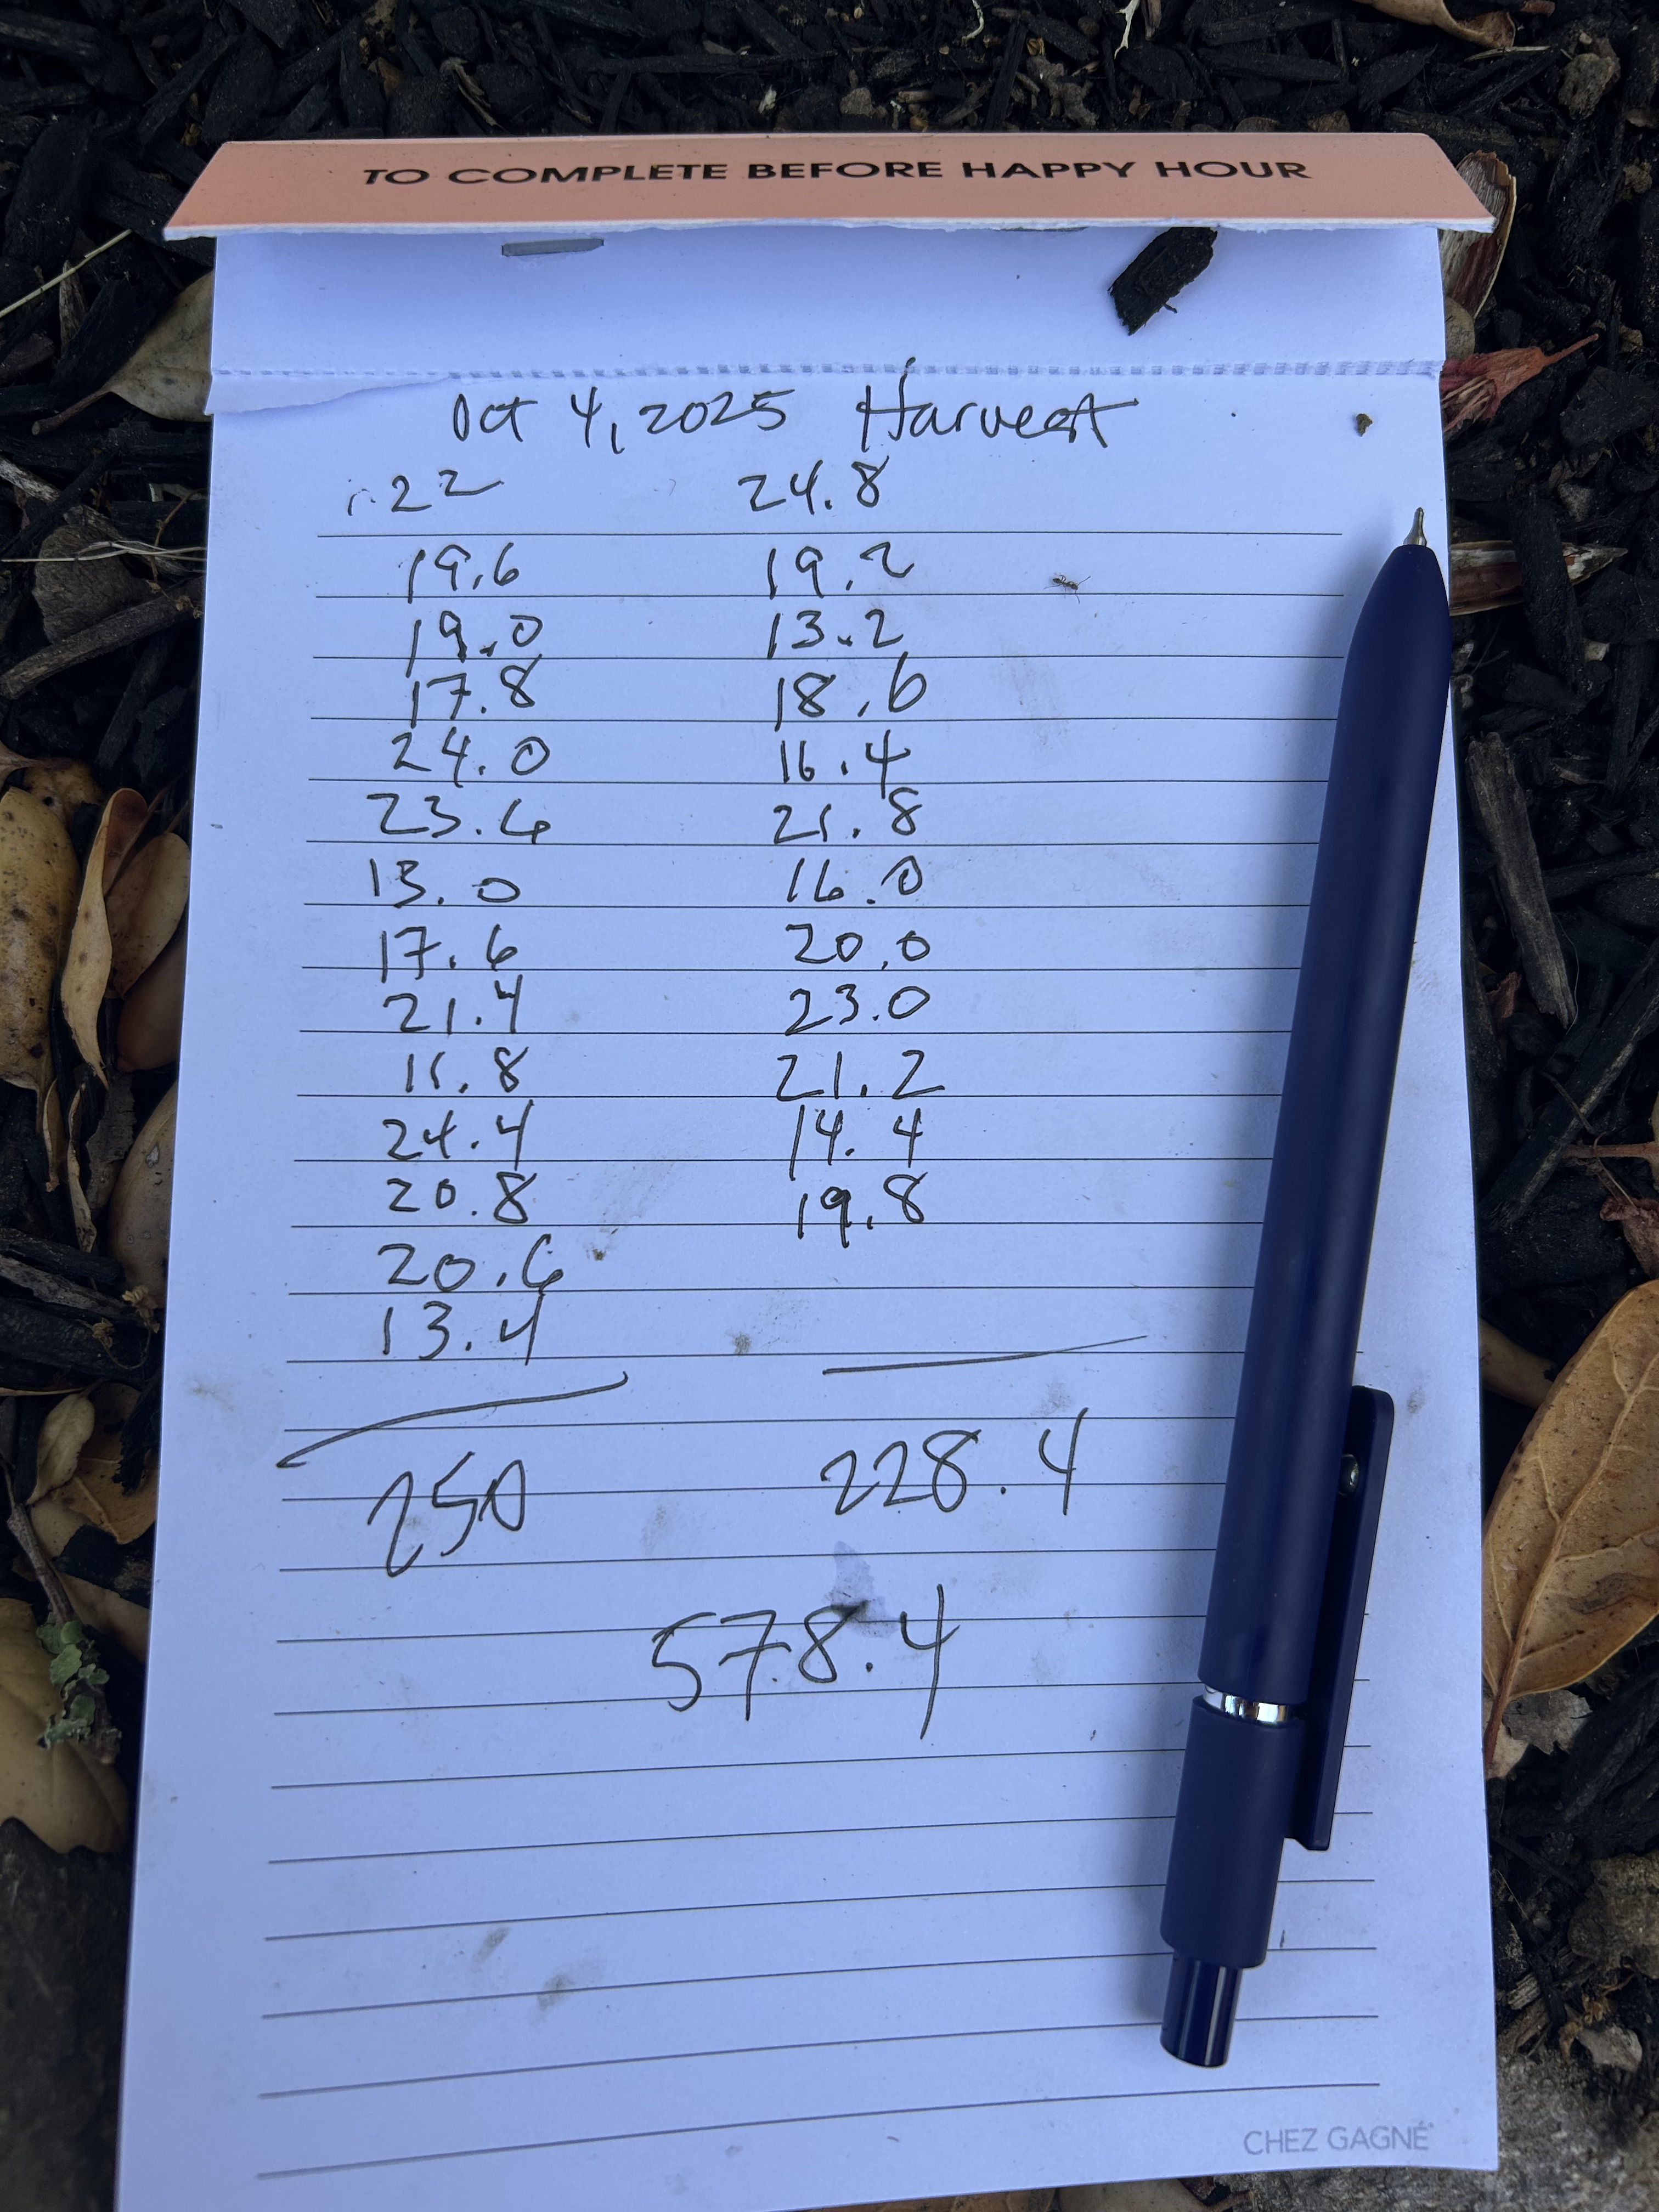 TO COMPLETE BEFORE HAPPY HOUR
Oct 4, 2025 Harvest
22 24.8
19.6 19.2
19.0 13.2
17.8 18.6
24.0 16.4
23.6 21.8
13.0 16.0
17.6 20.0
21.4 23.0
11.8 21.2
24.4 14.4
20.8 19.8
20.6
13.4
250 228.4
578.4
CHEZ GAGNÉ